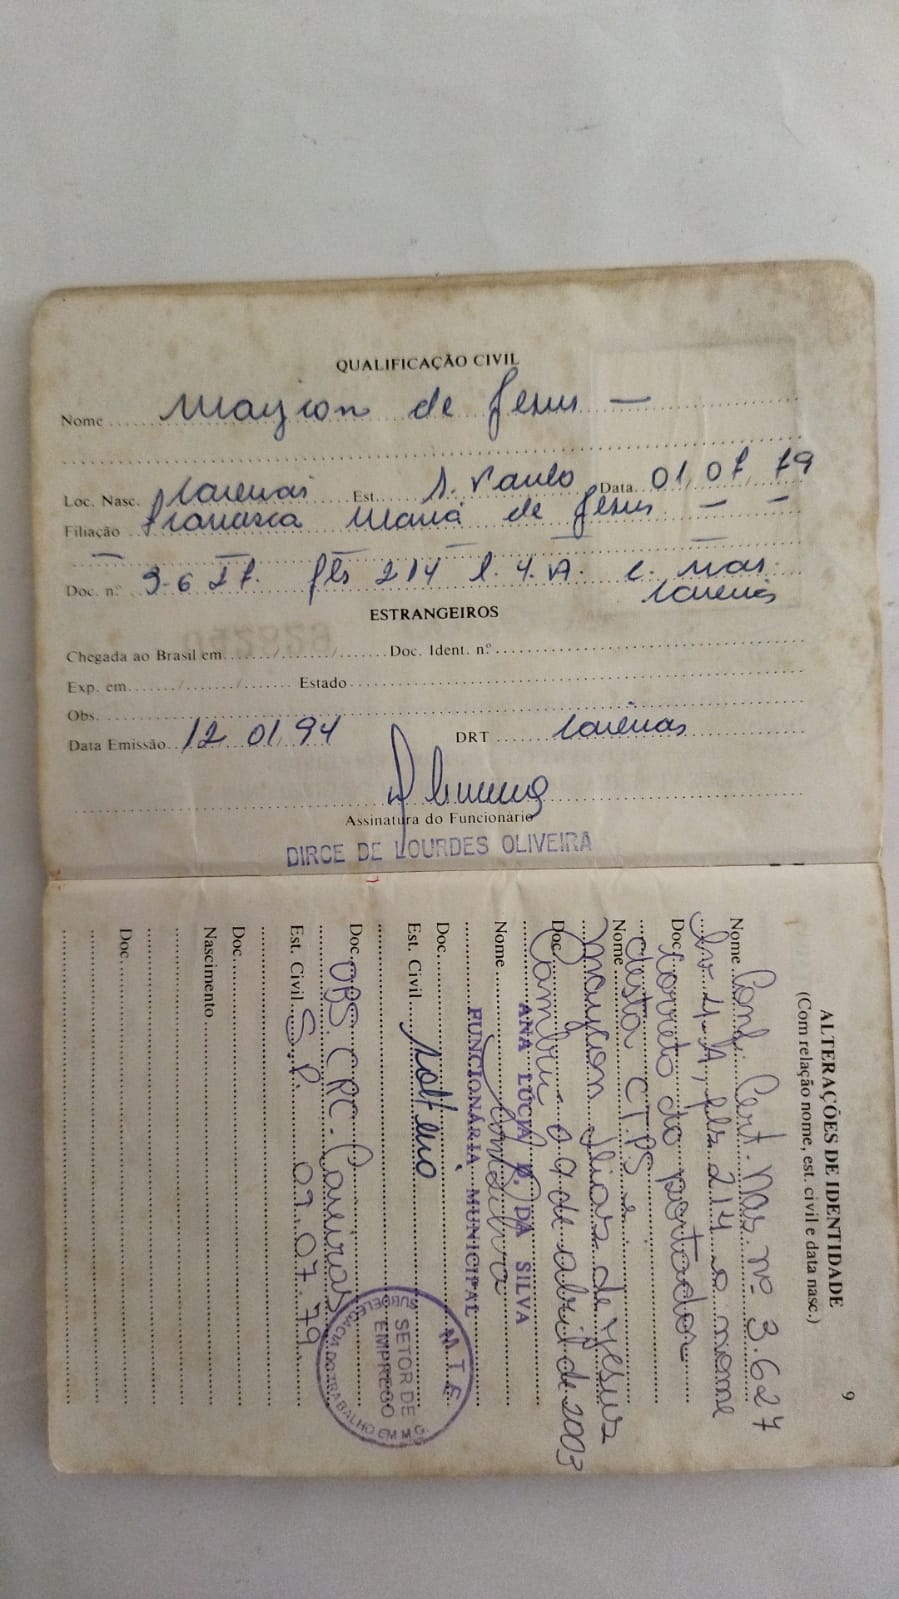 QUALIFICAÇÃO CIVIL
Nome Maycon de Jesus —
Loc. Nasc. Caieiras Est. S. Paulo Data 01 07 79
Filiação Francisca Maria de Jesus — —
Doc. nº 3.627. fls 214 l. 4.A. C. Nas.
Caieiras
ESTRANGEIROS
Chegada ao Brasil em / / Doc. Ident. nº
Exp. em / / Estado
Obs.
Data Emissão 12 01 94 DRT Caieiras
Assinatura do Funcionário
DIRCE DE LOURDES OLIVEIRA
9
ALTERAÇÕES DE IDENTIDADE
(Com relação nome, est. civil e data nasc.)
Nome Conf. Cert. Nas. nº 3.627
Lv 4-A, fls 214 o nome
Doc. correto do portador
desta CTPS é
Nome
Maycon Elias de Jesus
Doc. 09 de abril de 2003
ANA LÚCIA P. DA SILVA
Nome
FUNCIONÁRIA MUNICIPAL
Doc.
Est. Civil solteiro
Doc. OBS. CRC. Caieiras
Est. Civil S.P. 09.07.79
Doc.
Nascimento
Doc.
M.T.E.
SETOR DE
EMPREGO
SUBDELEGACIA DO TRABALHO EM M.G.